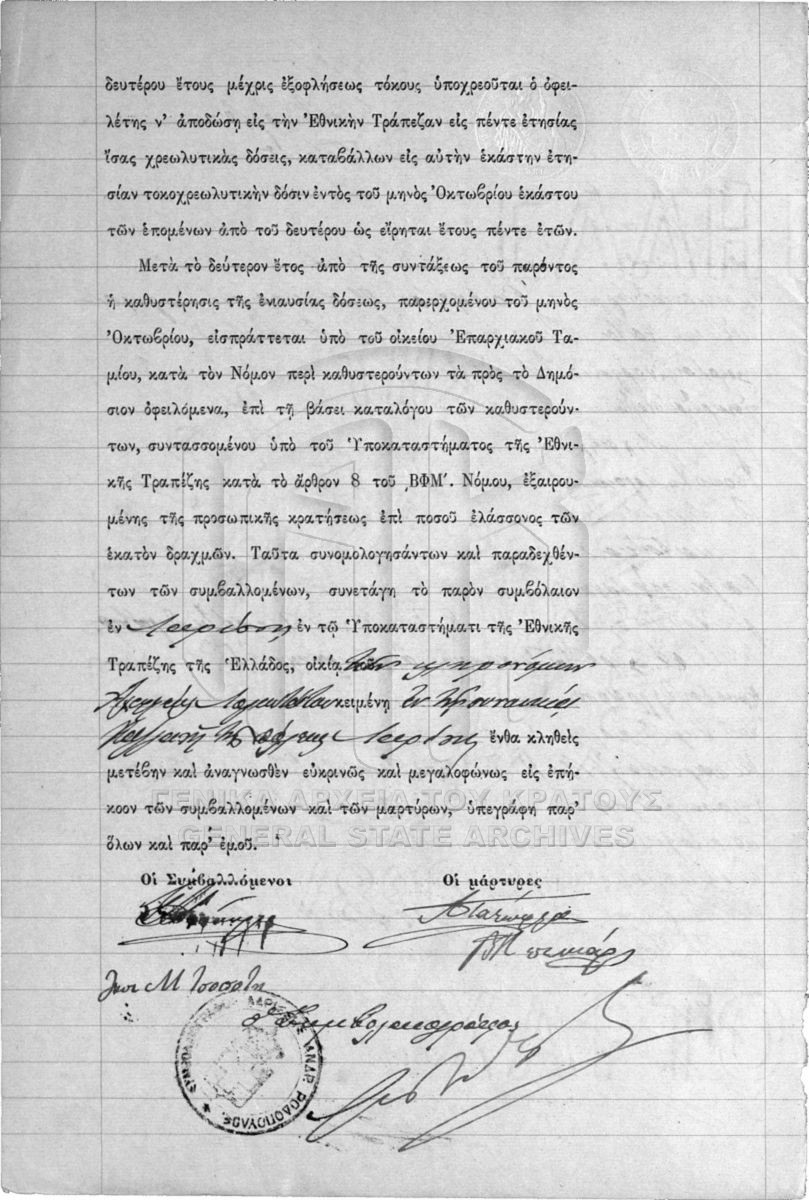 δευτέρου ἔτους μέχρις ἐξοφλήσεως τόκους ὑποχρεοῦται ὁ ὀφει-
λέτης ν' ἀποδώσῃ εἰς τὴν Ἐθνικὴν Τράπεζαν εἰς πέντε ἐτησίας
ἴσας χρεωλυτικὰς δόσεις, καταβάλλων εἰς αὐτὴν ἑκάστην ἐτη-
σίαν τοκοχρεωλυτικὴν δόσιν ἐντὸς τοῦ μηνὸς Ὀκτωβρίου ἑκάστου
τῶν ἑπομένων ἀπὸ τοῦ δευτέρου ὡς εἴρηται ἔτους πέντε ἐτῶν.
Μετὰ τὸ δεύτερον ἔτος ἀπὸ τῆς συντάξεως τοῦ παρόντος
ἡ καθυστέρησις τῆς ἐνιαυσίας δόσεως, παρερχομένου τοῦ μηνὸς
Ὀκτωβρίου, εἰσπράττεται ὑπὸ τοῦ οἰκείου Ἐπαρχιακοῦ Τα-
μίου, κατὰ τὸν Νόμον περὶ καθυστερούντων τὰ πρὸς τὸ Δημό-
σιον ὀφειλόμενα, ἐπὶ τῇ βάσει καταλόγου τῶν καθυστερούν-
των, συντασσομένου ὑπὸ τοῦ Ὑποκαταστήματος τῆς Ἐθνι-
κῆς Τραπέζης κατὰ τὸ ἄρθρον 8 τοῦ ͵ΒΦΜ΄. Νόμου, ἐξαιρου-
μένης τῆς προσωπικῆς κρατήσεως ἐπὶ ποσοῦ ἐλάσσονος τῶν
ἑκατὸν δραχμῶν. Ταῦτα συνομολογησάντων καὶ παραδεχθέν-
των τῶν συμβαλλομένων, συνετάγη τὸ παρὸν συμβόλαιον
ἐν Λαρίσῃ ἐν τῷ Ὑποκαταστήματι τῆς Ἐθνικῆς
Τραπέζης τῆς Ἑλλάδος, οἰκίᾳ τῶν κληρονόμων
κειμένῃ ἐν τῇ συνοικίᾳ
τῆς πόλεως Λαρίσης ἔνθα κληθεὶς
μετέβην καὶ ἀναγνωσθὲν εὐκρινῶς καὶ μεγαλοφώνως εἰς ἐπή-
κοον τῶν συμβαλλομένων καὶ τῶν μαρτύρων, ὑπεγράφη παρ'
ὅλων καὶ παρ' ἐμοῦ.
ΓΕΝΙΚΑ ΑΡΧΕΙΑ ΤΟΥ ΚΡΑΤΟΥΣ
GENERAL STATE ARCHIVES
Οἱ Συμβαλλόμενοι Οἱ μάρτυρες
Ὁ Συμβολαιογράφος
ΡΟΔΟΠΟΥΛΟΣ